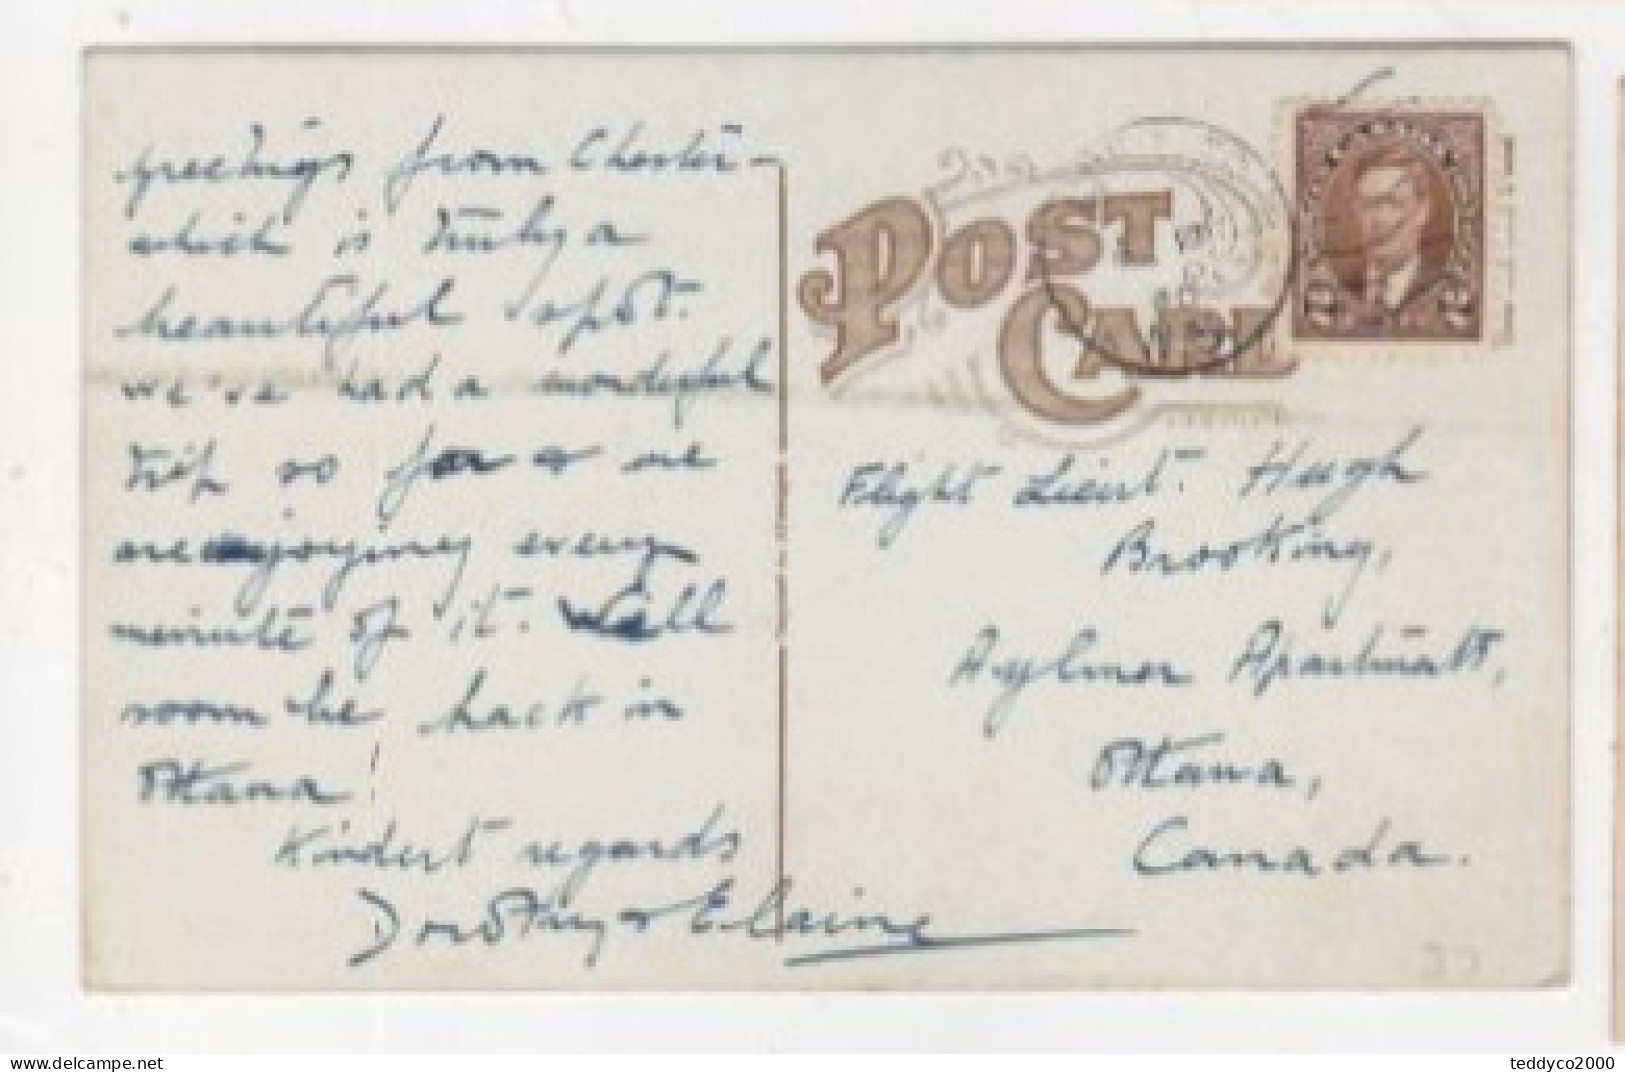 greetings from Chester -
which is truly a
beautiful spot.
we've had a wonderful
trip so far & we
are enjoying every
minute of it. We'll
soon be back in
Ottawa!
Kindest regards
Dorothy & Elaine
POST
CARD
Flight Lieut. Hugh
Brooking,
Aylmer Apartments,
Ottawa,
Canada.
2 2
teddyco2000